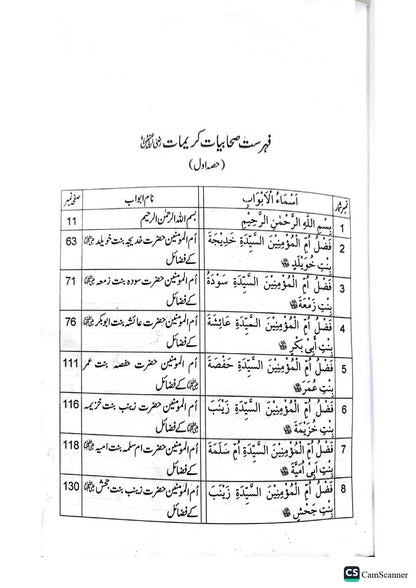 فہرست صحابیات کریمات رضی اللہ عنہن
(حصہ اول)
نمبر شمار اَسْمَاءُ الْاَبْوَابِ نام ابواب صفحہ نمبر
1 بِسْمِ اللّٰهِ الرَّحْمٰنِ الرَّحِيْمِ بسم اللہ الرحمن الرحیم 11
2 فَضْلُ اُمِّ الْمُؤْمِنِيْنَ السَّيِّدَةِ خَدِيْجَةَ اُم المؤمنین حضرت خدیجہ بنت خویلد رضی اللہ عنہا 63
بِنْتِ خُوَيْلِدٍ کے فضائل
3 فَضْلُ اُمِّ الْمُؤْمِنِيْنَ السَّيِّدَةِ سَوْدَةَ اُم المؤمنین حضرت سودہ بنت زمعہ رضی اللہ عنہا 71
بِنْتِ زَمْعَةَ کے فضائل
4 فَضْلُ اُمِّ الْمُؤْمِنِيْنَ السَّيِّدَةِ عَائِشَةَ اُم المؤمنین حضرت عائشہ بنت ابوبکر رضی اللہ عنہا 76
بِنْتِ أَبِيْ بَكْرٍ کے فضائل
5 فَضْلُ اُمِّ الْمُؤْمِنِيْنَ السَّيِّدَةِ حَفْصَةَ اُم المؤمنین حضرت حفصہ بنت عمر 111
بِنْتِ عُمَرَ رضی اللہ عنہا کے فضائل
6 فَضْلُ اُمِّ الْمُؤْمِنِيْنَ السَّيِّدَةِ زَيْنَبَ اُم المؤمنین حضرت زینب بنت خزیمہ 116
بِنْتِ خُزَيْمَةَ رضی اللہ عنہا کے فضائل
7 فَضْلُ اُمِّ الْمُؤْمِنِيْنَ السَّيِّدَةِ اُمِّ سَلَمَةَ اُم المؤمنین حضرت ام سلمہ بنت امیہ رضی اللہ عنہا 118
بِنْتِ أَبِيْ اُمَيَّةَ کے فضائل
8 فَضْلُ اُمِّ الْمُؤْمِنِيْنَ السَّيِّدَةِ زَيْنَبَ اُم المؤمنین حضرت زینب بنت جحش رضی اللہ عنہا 130
بِنْتِ جَحْشٍ کے فضائل
CS CamScanner